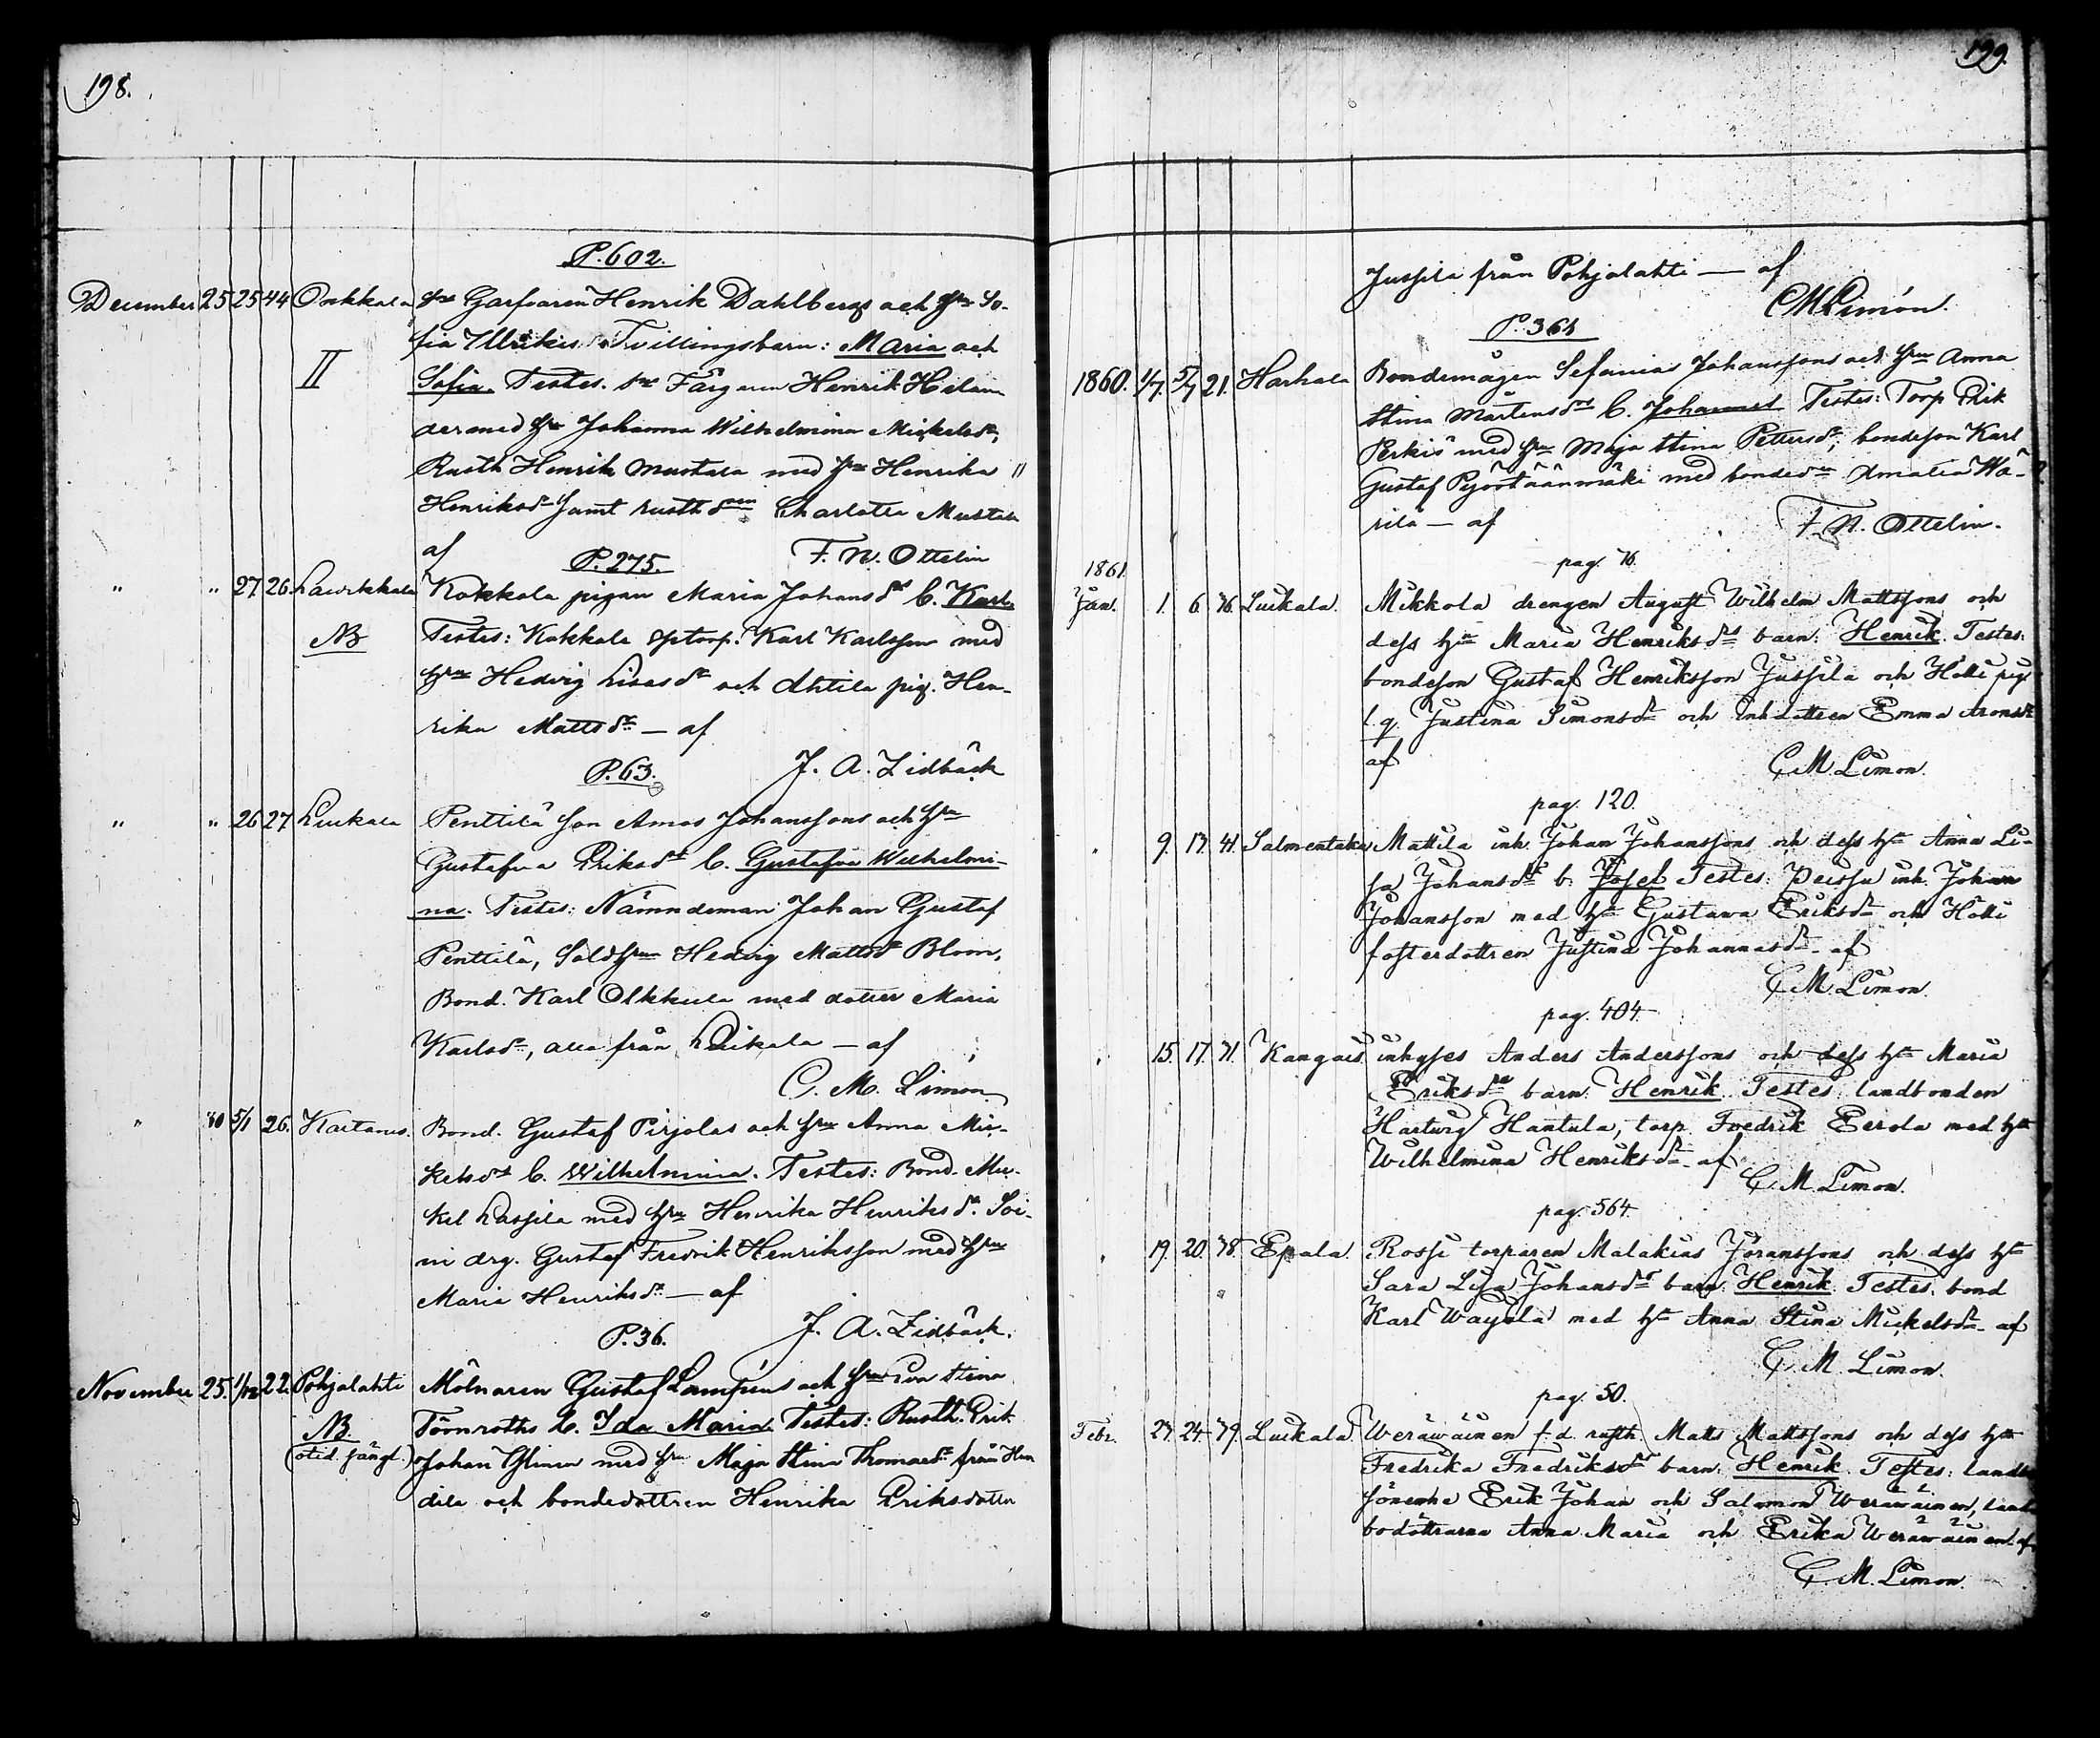 198.
P. 602.
December 25 25 44 Onkkala Garfvaren Henrik Dahlbergs och hru So-
fia Ullrikas Tvillingsbarn: Maria och
II Sofia. Testes. Färgaren Henrik Helan
der med hru Johanna Wilhelmina Mickelsdr,
Rusth Henrik Mustala med hru Henrika
Henriksdr samt rusth drn Charlotta Mustala
af F. W. Ottelin
P. 275.
" " 27 26. Laurikkala Kokkola pigan Maria Johansdrs b. Karl.
NB Testes: Kokkola torp. Karl Karlsson med
hru Hedvig Lisasdr och Ahtila pig. Hen-
rika Mattsdr — af
J. A. Lidbäck
P. 63.
" " 26 27. Luikala Penttilä son Amos Johanssons och hru
Gustafva Eriksdrs b. Gustafva Wilhelmi-
na. Testes: Nämndeman Johan Gustaf
Penttilä, Soldhru Hedvig Mattsdr Blom,
Bond. Karl Olkkula med dotter Maria
Karlsdr, alla från Luikala — af
C. M. Limon
" 30 5/1 26. Kaitanis. Bond. Gustaf Pirjolas och hru Anna Mic-
kelsdrs b. Wilhelmina. Testes: Bond. Mic-
kel Lassila med hru Henrika Henriksdr. Soi-
ni drg. Gustaf Fredrik Henriksson med hru
Maria Henriksdr — af
J. A. Lidbäck.
P. 36.
November 25. 1/12 22. Pohjalahti Mölnaren Gustaf Lampéns och hru Eva Stina
NB Törnroths b. Ida Maria. Testes: Rusth. Erik
Johan med hru Maja Stina Thomasdr från Hun
dila och bondedottren Henrika Eriksdotter
199.
Jussila från Pohjalahti — af
CM Limón.
P. 364
1860. 1/7. 5/7 21. Harhala Bondemågen Sefanias Johanssons och hru Anna
Stina Mårtensdrs b. Johannes Testes: Torp Erik
Perkiö med hru Maja Stina Pettersdr, bondeson Karl
Gustaf Pyöötäänmäki med bondedr Amalia Wä-
rilä — af F. W. Ottelin.
pag. 76.
1861.
Jan. 1. 6. 76. Luikala. Mikkola drengen August Wilhelm Mattssons och
dess hu Maria Henriksdrs barn: Henrik. Testes:
bondeson Gustaf Henriksson Jussila och Hotti pig
l. q. Justina Simonsdr och inh dottren Emma Aronsdr
af C. M. Limon.
pag. 120.
" 9. 13. 41. Salmentaka Mattila inh. Johan Johanssons och dess hu Anna Li-
sa Johansdrs b: Josef. Testes: Peissu inh. Johan
Johansson med hu Gustava Eriksdr och Hotti
fosterdottren Justina Johannasdr af
C. M. Limon.
pag. 404.
" 15. 17. 71. Kangais. inhyses Anders Anderssons och dess hu Maria
Eriksdrs barn: Henrik. Testes: landbonden
Hartvig Hantula, torp. Fredrik Eerola med hu
Wilhelmina Henriksdr af
C. M. Limon.
pag. 564.
" 19. 20. 78. Epaala. Rossi torparen Malakias Jöranssons och dess hu
Sara Lisa Johansdrs barn: Henrik. Testes: bond
Karl Waysola med hu Anna Stina Mickelsdr af
C. M. Limon.
pag. 50.
Febr. 23. 24. 79. Luikala. Weräwäinen f. d. rusth. Matts Mattssons och dess hu
Fredrika Fredriksdrs barn: Henrik. Testes: landb
sönerna Erik Johan och Salomon Weräwäinen, land
bodöttrarna Anna Maria och Erika Weräwäinen af
C. M. Limon.